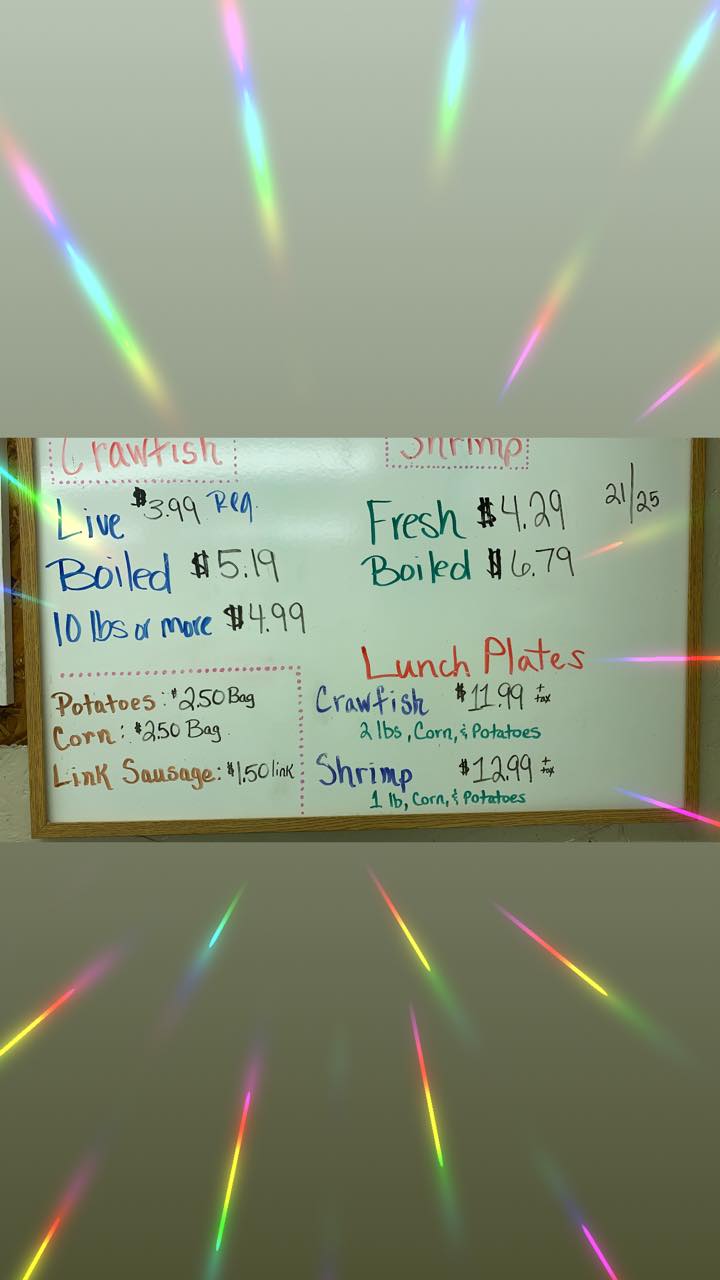 Crawfish
Live $3.99 Reg.
Boiled $5.19
10 lbs or more $4.99
Potatoes: $2.50 Bag
Corn: $2.50 Bag
Link Sausage: $1.50 link
Shrimp
Fresh $4.29 21/25
Boiled $6.79
Lunch Plates
Crawfish $11.99 + tax
2 lbs, Corn, & Potatoes
Shrimp $12.99 + tax
1 lb, Corn, & Potatoes